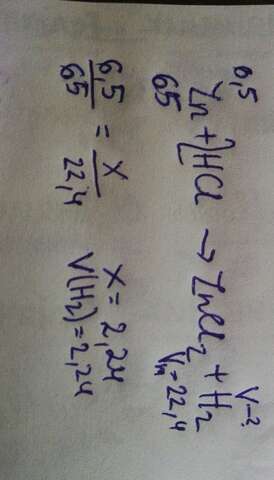 6,5 V-?
Zn + 2HCl → ZnCl2 + H2
65 Vm=22,4
6,5/65 = x/22,4 x = 2,24
V(H2) = 2,24